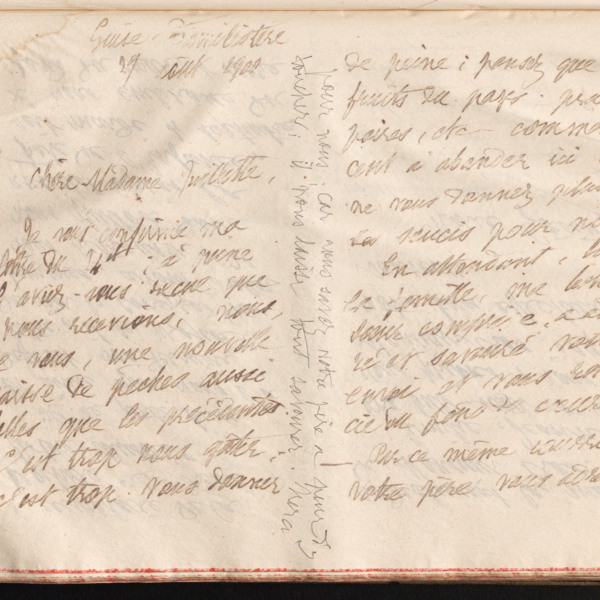 Guise - Familistère
29 août 1900
chère Madame Juliette,
Je vous confirme ma
lettre du 4 ct ; à peine
l'aviez-vous reçue que
nous recevions, nous,
de vous, une nouvelle
caisse de pêches aussi
belles que les précédentes
C'est trop nous gâter ;
c'est trop vous donner
pour nous ; car nous savez votre père a peur d'y
toucher ; il nous laisse tout
de peine ; pensez que
fruits du pays
poires, etc comme
cent à abonder ici
ne vous donnez plus
de soucis pour no
En attendant, la
la famille,
compris, a
ré et savouré votre
envoi et vous re
cie du fond du cœur
Par ce même courri
votre père vous adr